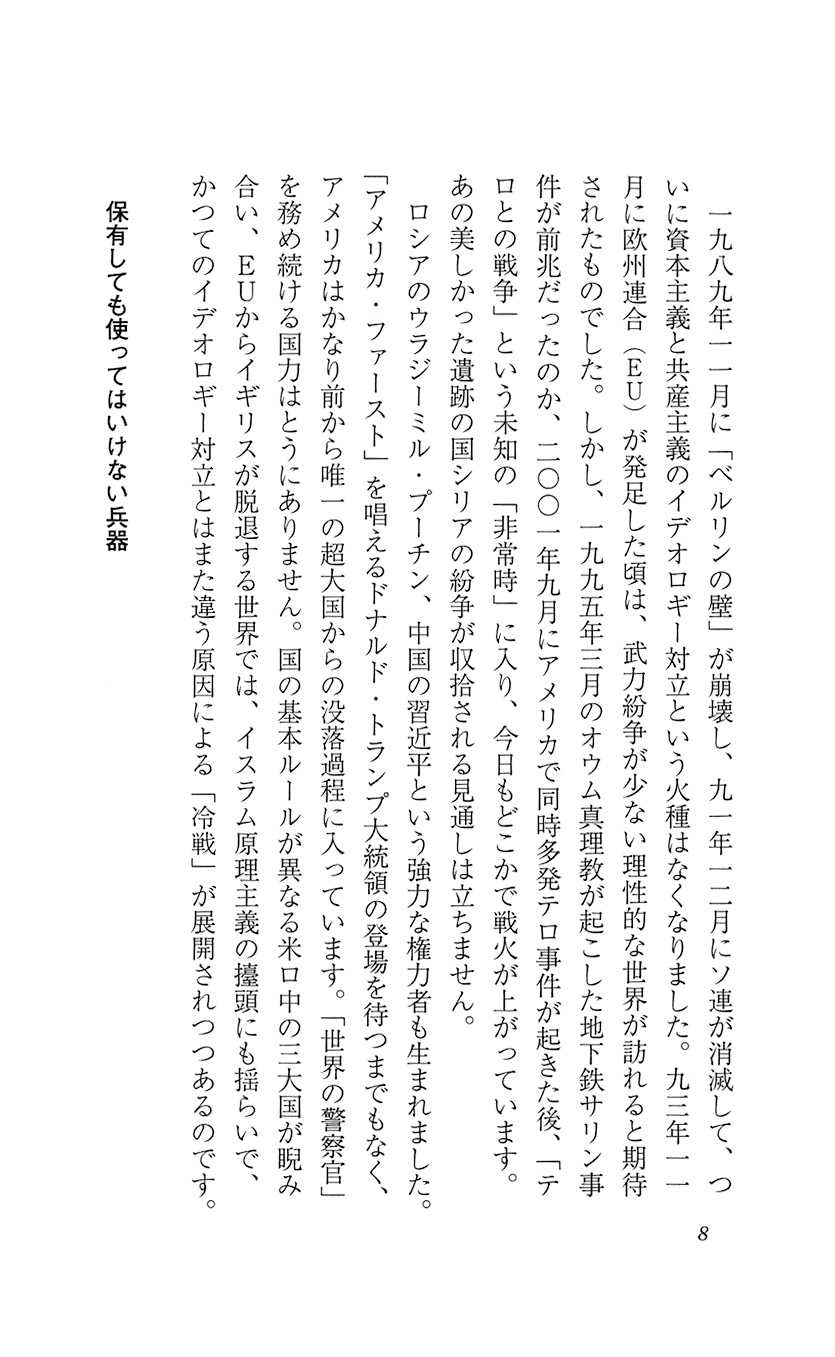 一九八九年一一月に「ベルリンの壁」が崩壊し、九一年一二月にソ連が消滅して、つ
いに資本主義と共産主義のイデオロギー対立という火種はなくなりました。九三年一一
月に欧州連合（ＥＵ）が発足した頃は、武力紛争が少ない理性的な世界が訪れると期待
されたものでした。しかし、一九九五年三月のオウム真理教が起こした地下鉄サリン事
件が前兆だったのか、二〇〇一年九月にアメリカで同時多発テロ事件が起きた後、「テ
ロとの戦争」という未知の「非常時」に入り、今日もどこかで戦火が上がっています。
あの美しかった遺跡の国シリアの紛争が収拾される見通しは立ちません。
ロシアのウラジーミル・プーチン、中国の習近平という強力な権力者も生まれました。
「アメリカ・ファースト」を唱えるドナルド・トランプ大統領の登場を待つまでもなく、
アメリカはかなり前から唯一の超大国からの没落過程に入っています。「世界の警察官」
を務め続ける国力はとうにありません。国の基本ルールが異なる米ロ中の三大国が睨み
合い、ＥＵからイギリスが脱退する世界では、イスラム原理主義の擡頭にも揺らいで、
かつてのイデオロギー対立とはまた違う原因による「冷戦」が展開されつつあるのです。
保有しても使ってはいけない兵器
8